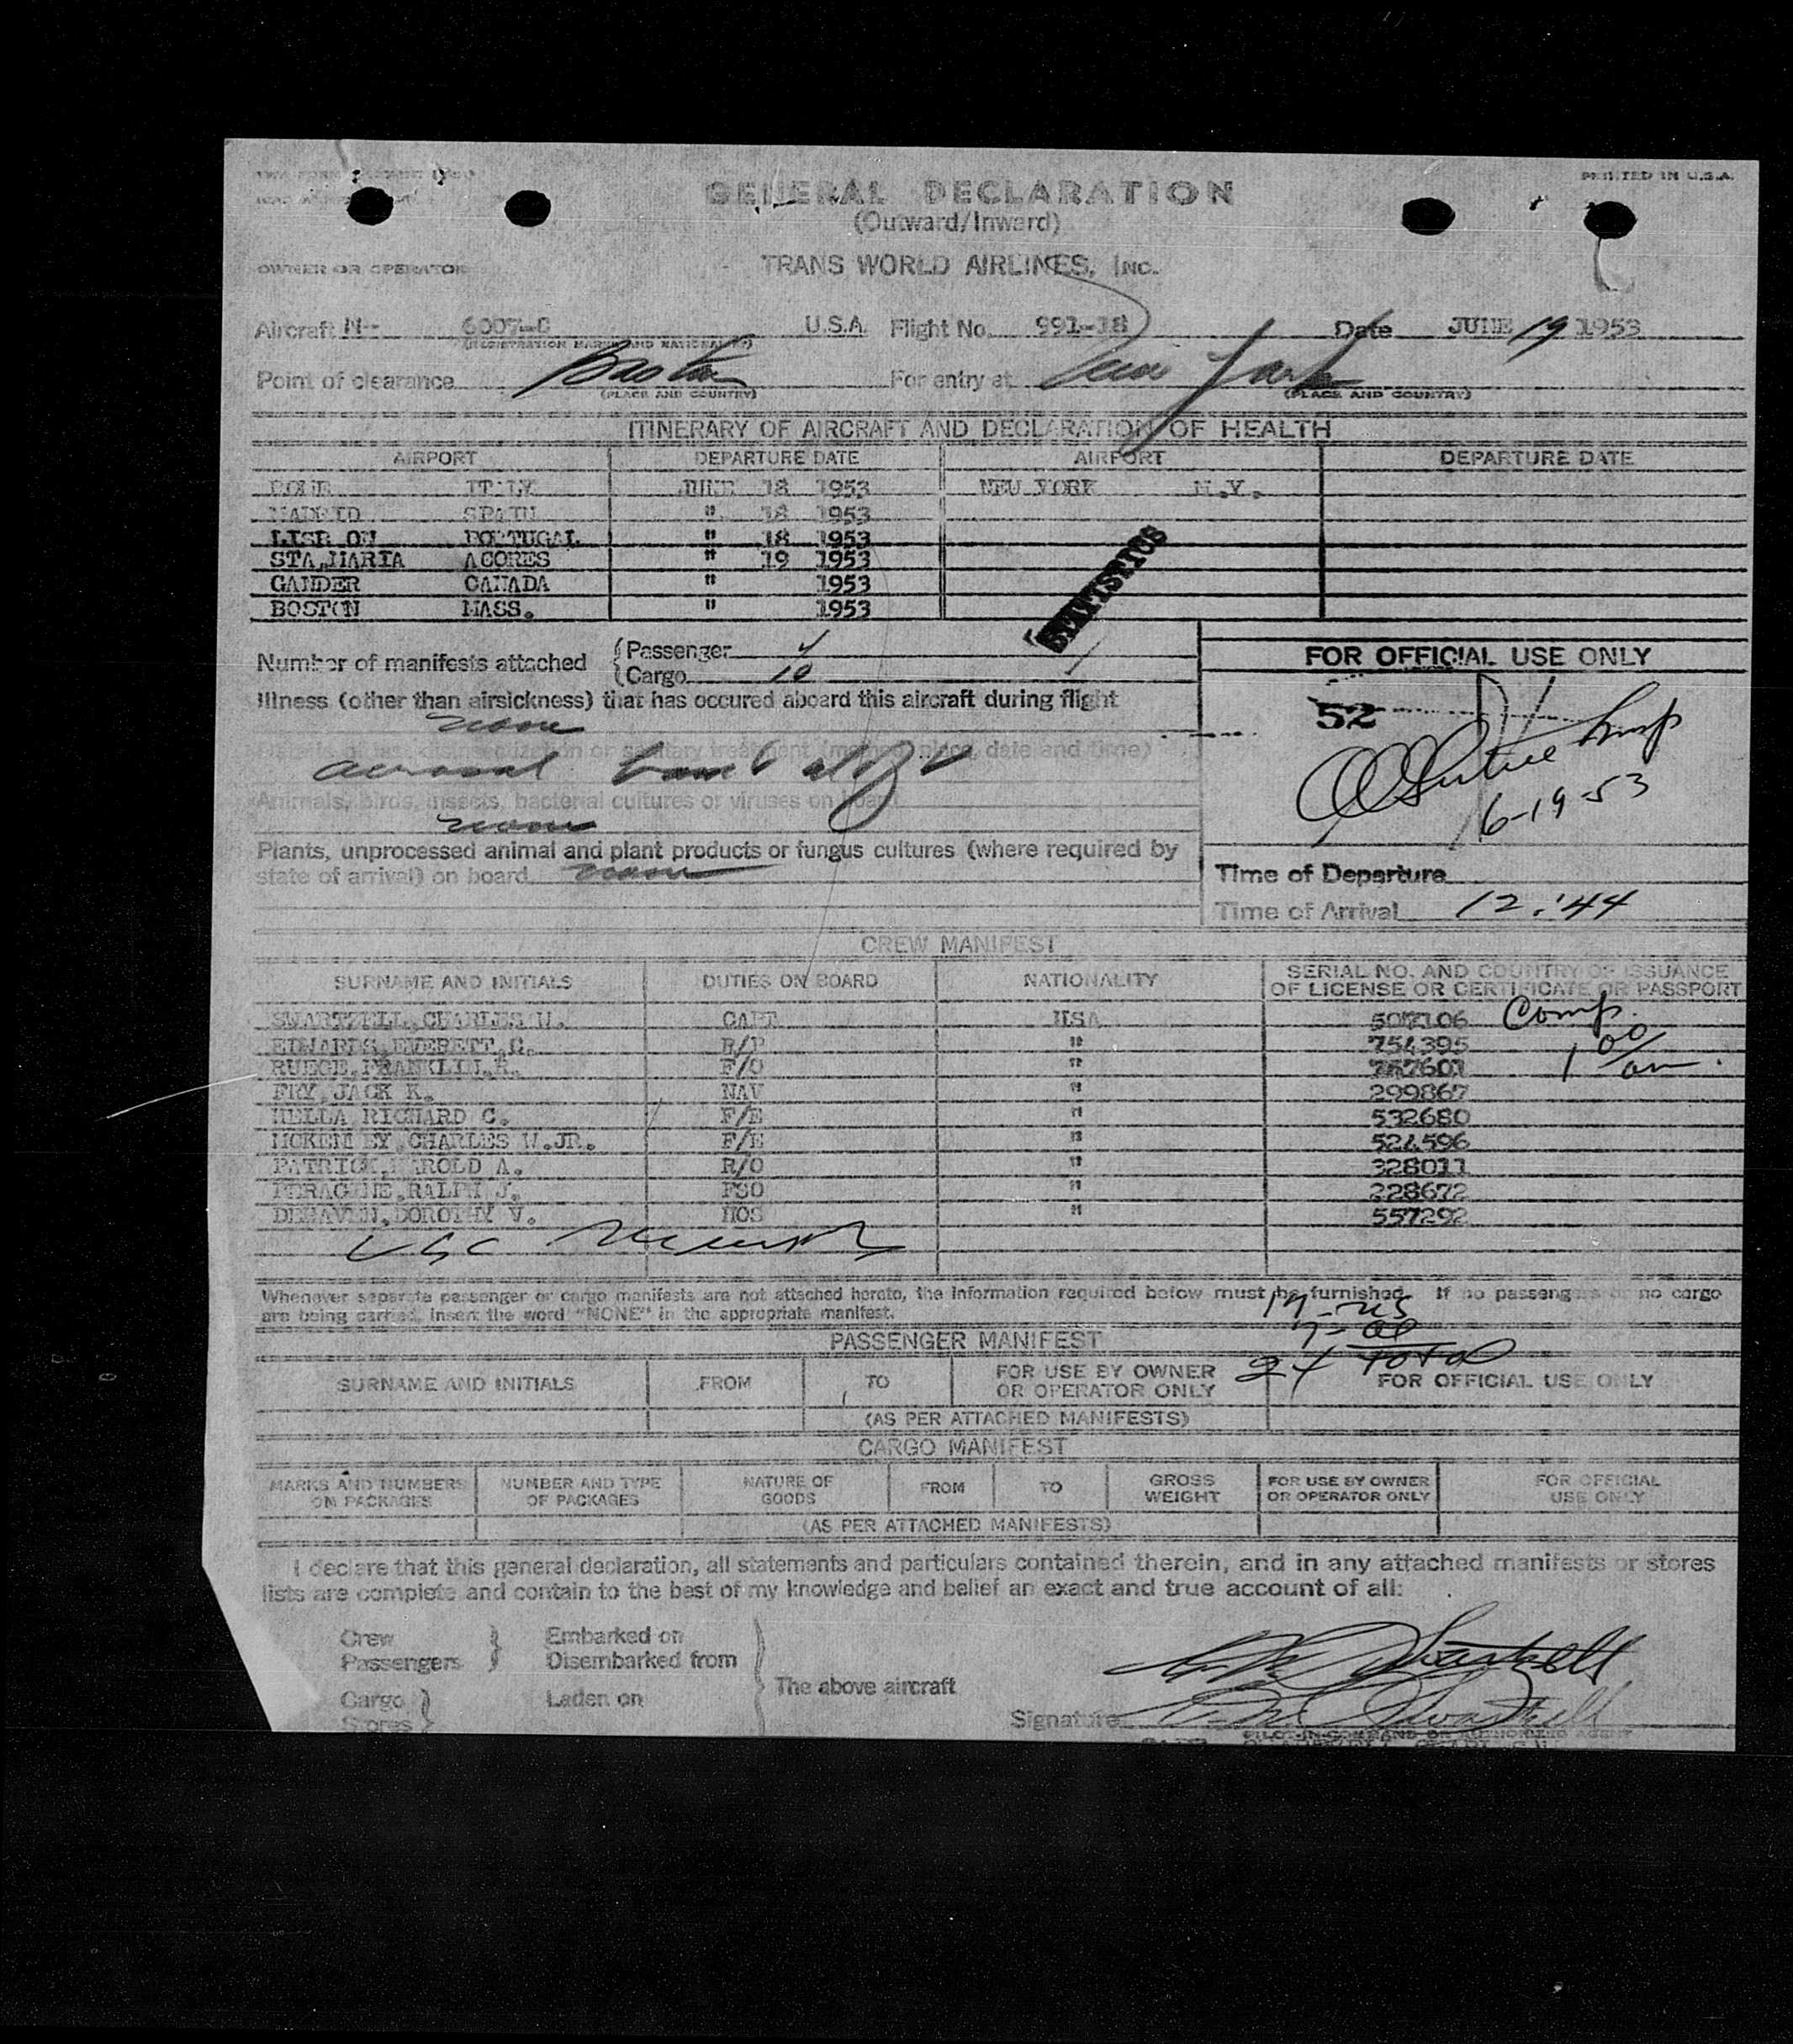 PRINTED IN U.S.A.
GENERAL DECLARATION
(Outward/Inward)
OWNER OR OPERATOR
TRANS WORLD AIRLINES, INC.
Aircraft N-- 6007-C U.S.A. Flight No. 991-18 Date JUNE 19 1953
(REGISTRATION MARKS AND NATIONALITY)
Point of clearance Boston For entry at New York
(PLACE AND COUNTRY) (PLACE AND COUNTRY)
ITINERARY OF AIRCRAFT AND DECLARATION OF HEALTH
AIRPORT DEPARTURE DATE AIRPORT DEPARTURE DATE
ROME ITALY JUNE 18 1953 NEW YORK N.Y.
MADRID SPAIN " 18 1953
LISBON PORTUGAL " 18 1953
STA,MARIA ACORES " 19 1953
GANDER CANADA " 1953
BOSTON MASS. " 1953
STATISTICS
Number of manifests attached
Passenger
Cargo 10
FOR OFFICIAL USE ONLY
Illness (other than airsickness) that has occured aboard this aircraft during flight
none
52
(method, place, date and time)
aerosol bomb
6-19-53
Animals, birds, insects, bacterial cultures or viruses on board
none
Plants, unprocessed animal and plant products or fungus cultures (where required by
state of arrival) on board none
Time of Departure
Time of Arrival 12:44
CREW MANIFEST
SURNAME AND INITIALS DUTIES ON BOARD NATIONALITY SERIAL NO. AND COUNTRY OF ISSUANCE
OF LICENSE OR CERTIFICATE OR PASSPORT
SWARTZELL,CHARLES W. CAPT USA 507106 Comp.
EDWARDS,EVERETT,C. R/P " 754395 1 00/am.
RUEGE,FRANKLIN,R. F/O " 787601
FRY,JACK K. NAV " 299867
HELLA RICHARD C. F/E " 532680
F/E " 524596
PATRICK,HAROLD A. R/O " 328011
RALPH J. FSO " 228672
DEHAVEN,DOROTHY V. HOS " 557292
USC
Whenever separate passenger or cargo manifests are not attached hereto, the information required below must be furnished. If no passengers or no cargo
are being carried, insert the word "NONE" in the appropriate manifest.
PASSENGER MANIFEST
24 Total
SURNAME AND INITIALS FROM TO FOR USE BY OWNER OR OPERATOR ONLY FOR OFFICIAL USE ONLY
(AS PER ATTACHED MANIFESTS)
CARGO MANIFEST
MARKS AND NUMBERS ON PACKAGES NUMBER AND TYPE OF PACKAGES NATURE OF GOODS FROM TO GROSS WEIGHT FOR USE BY OWNER OR OPERATOR ONLY FOR OFFICIAL USE ONLY
(AS PER ATTACHED MANIFESTS)
I declare that this general declaration, all statements and particulars contained therein, and in any attached manifests or stores
lists are complete and contain to the best of my knowledge and belief an exact and true account of all:
Crew Embarked on
Passengers Disembarked from
The above aircraft
Cargo Laden on
Stores
Signature Swartzell
PILOT-IN-COMMAND OR AUTHORIZED AGENT